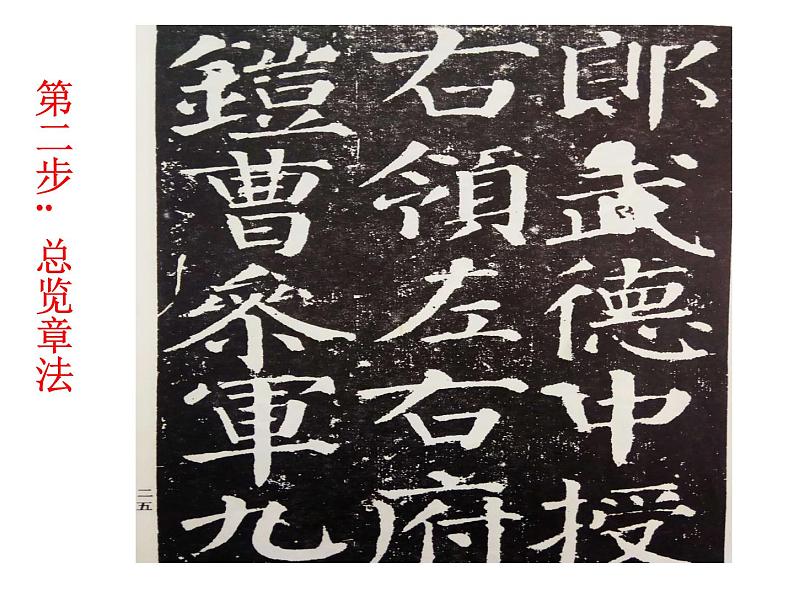 第二步：总览章法
郎武德中授
右領左右府
鎧曹叅軍九
二五